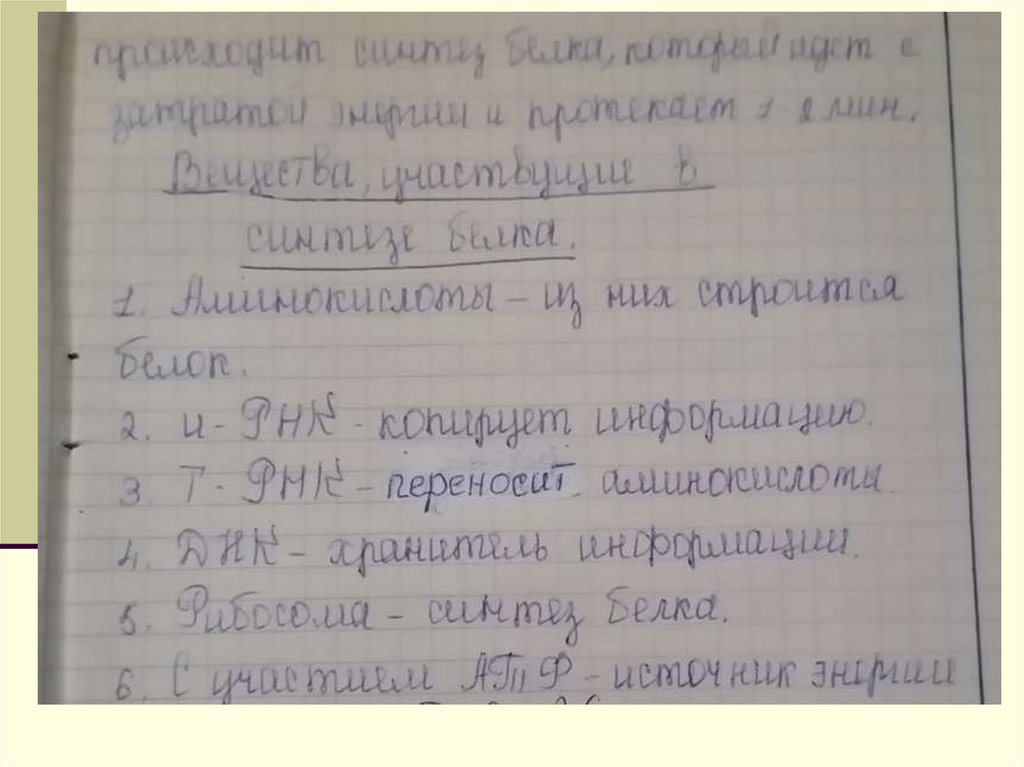 происходит синтез белка, который идет с
затратой энергии и протекает 1 2 мин.
Вещества, участвующие в
синтезе белка.
1. Аминокислоты – из них строится
белок.
2. и - РНК - копирует информацию.
3. Т - РНК – переносит аминокислоты
4. ДНК – хранитель информации.
5. Рибосома – синтез белка.
6. С участием АТФ – источник энергии